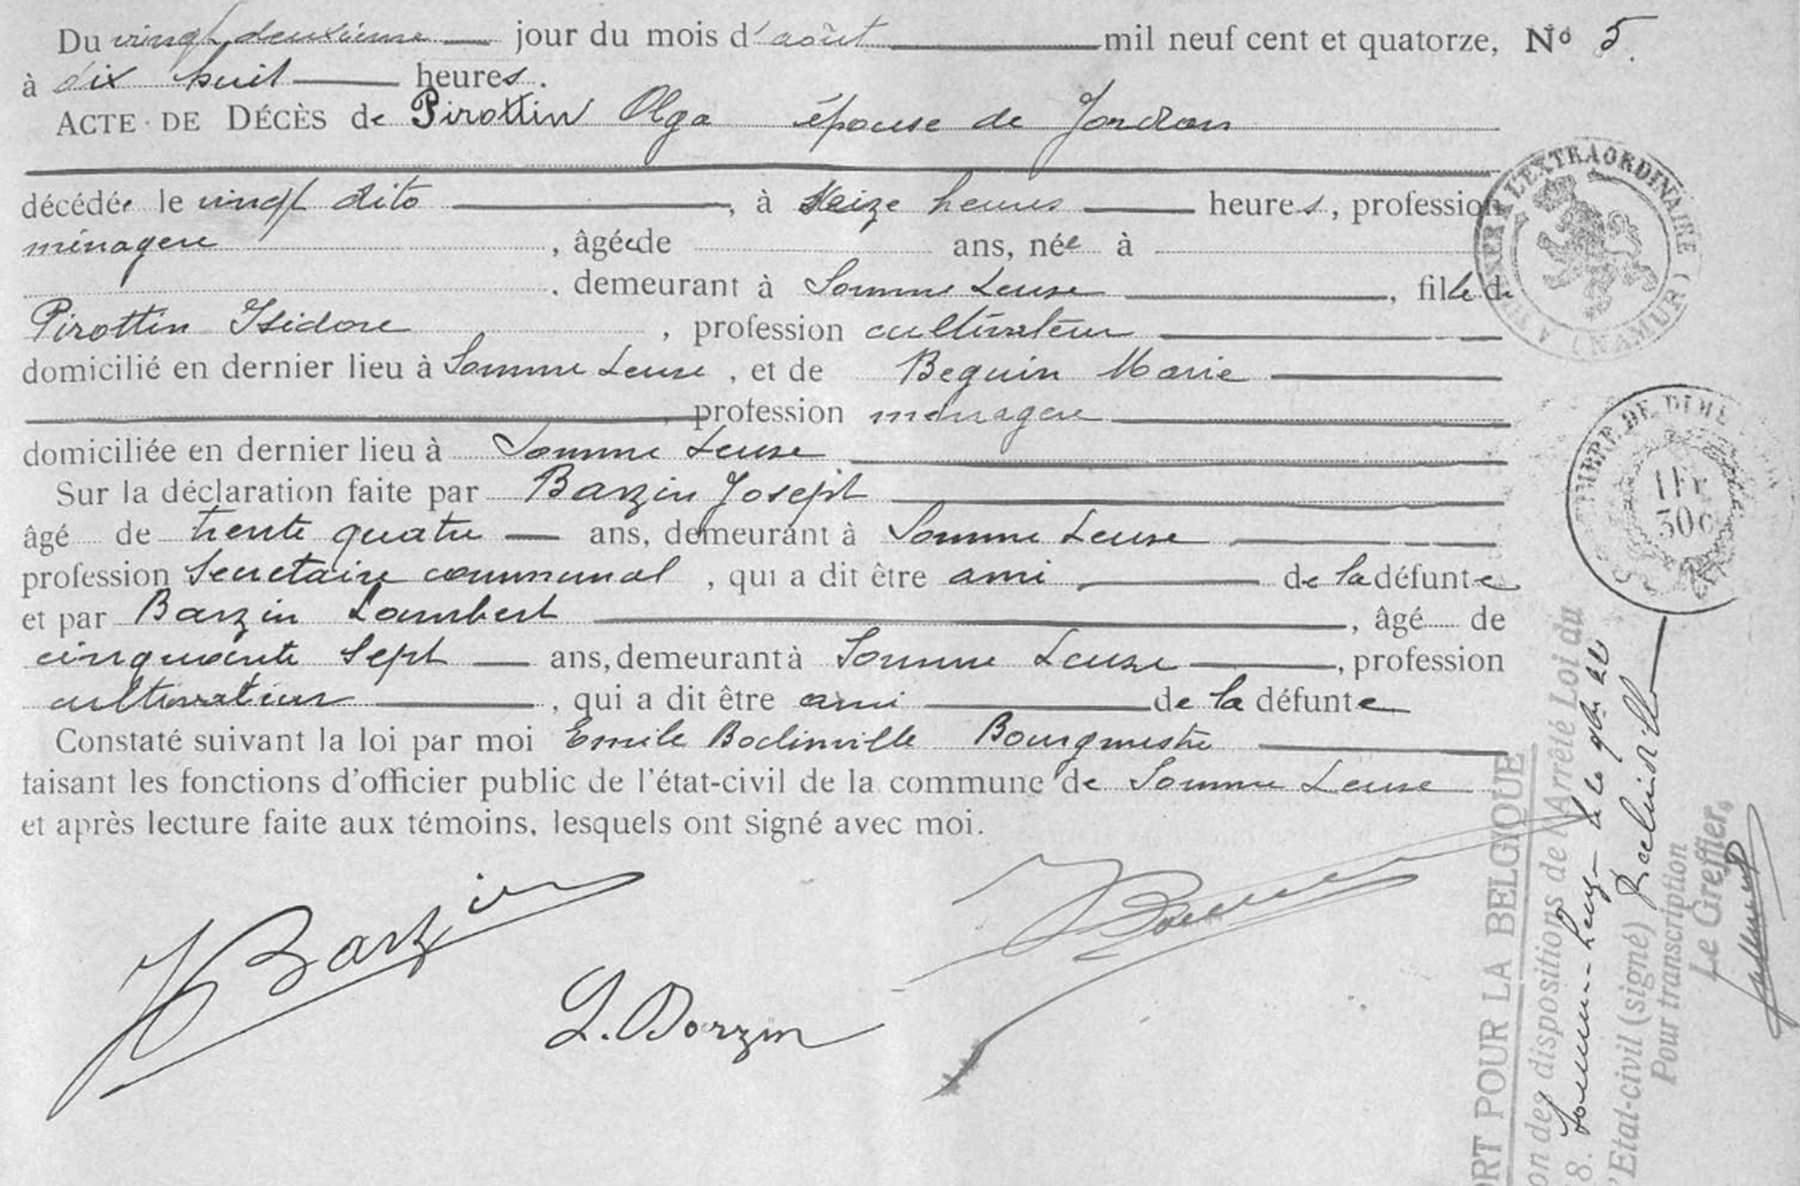 Du vingt deuxième jour du mois d'août mil neuf cent et quatorze, No 5.
à dix huit heures.
ACTE DE DÉCÈS de Pirottin Olga épouse de
décédée le vingt dito, à seize heures heures, profession
ménagere, âgée de ans, née à
, demeurant à Somme Leuze, fille de
Pirottin Isidore, profession cultivateur
domicilié en dernier lieu à Somme Leuze, et de Beguin Marie
, profession ménagere
domiciliée en dernier lieu à Somme Leuze
Sur la déclaration faite par Barzin Joseph
âgé de trente quatre ans, demeurant à Somme Leuze
profession Secretaire communal, qui a dit être ami de la défunte
et par Barzin Lambert, âgé de
cinquante sept ans, demeurant à Somme Leuze, profession
cultivateur, qui a dit être ami de la défunte
Constaté suivant la loi par moi Emile Bodinville Bourgmestre
faisant les fonctions d'officier public de l'état-civil de la commune de Somme Leuze
et après lecture faite aux témoins, lesquels ont signé avec moi.
J Barzin
L. Barzin
A TIMBRER A L'EXTRAORDINAIRE (NAMUR)
TIMBRE DE
1 FR
30 C
ORT POUR LA BELGIQUE
on des dispositions de l'Arrêté Loi du
8. Somme-Leuze le
l'Etat-civil (signé) Bodinville
Pour transcription
Le Greffier,